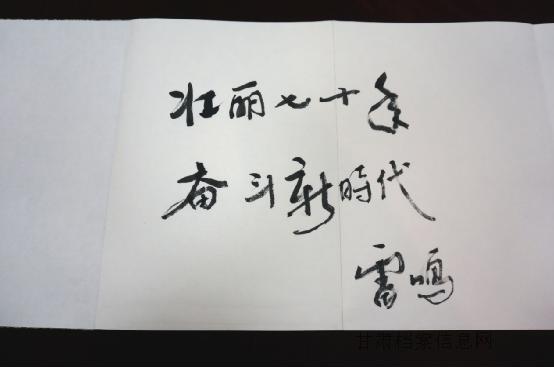 壮丽七十年
奋斗新時代
雷鸣
甘肃档案信息网